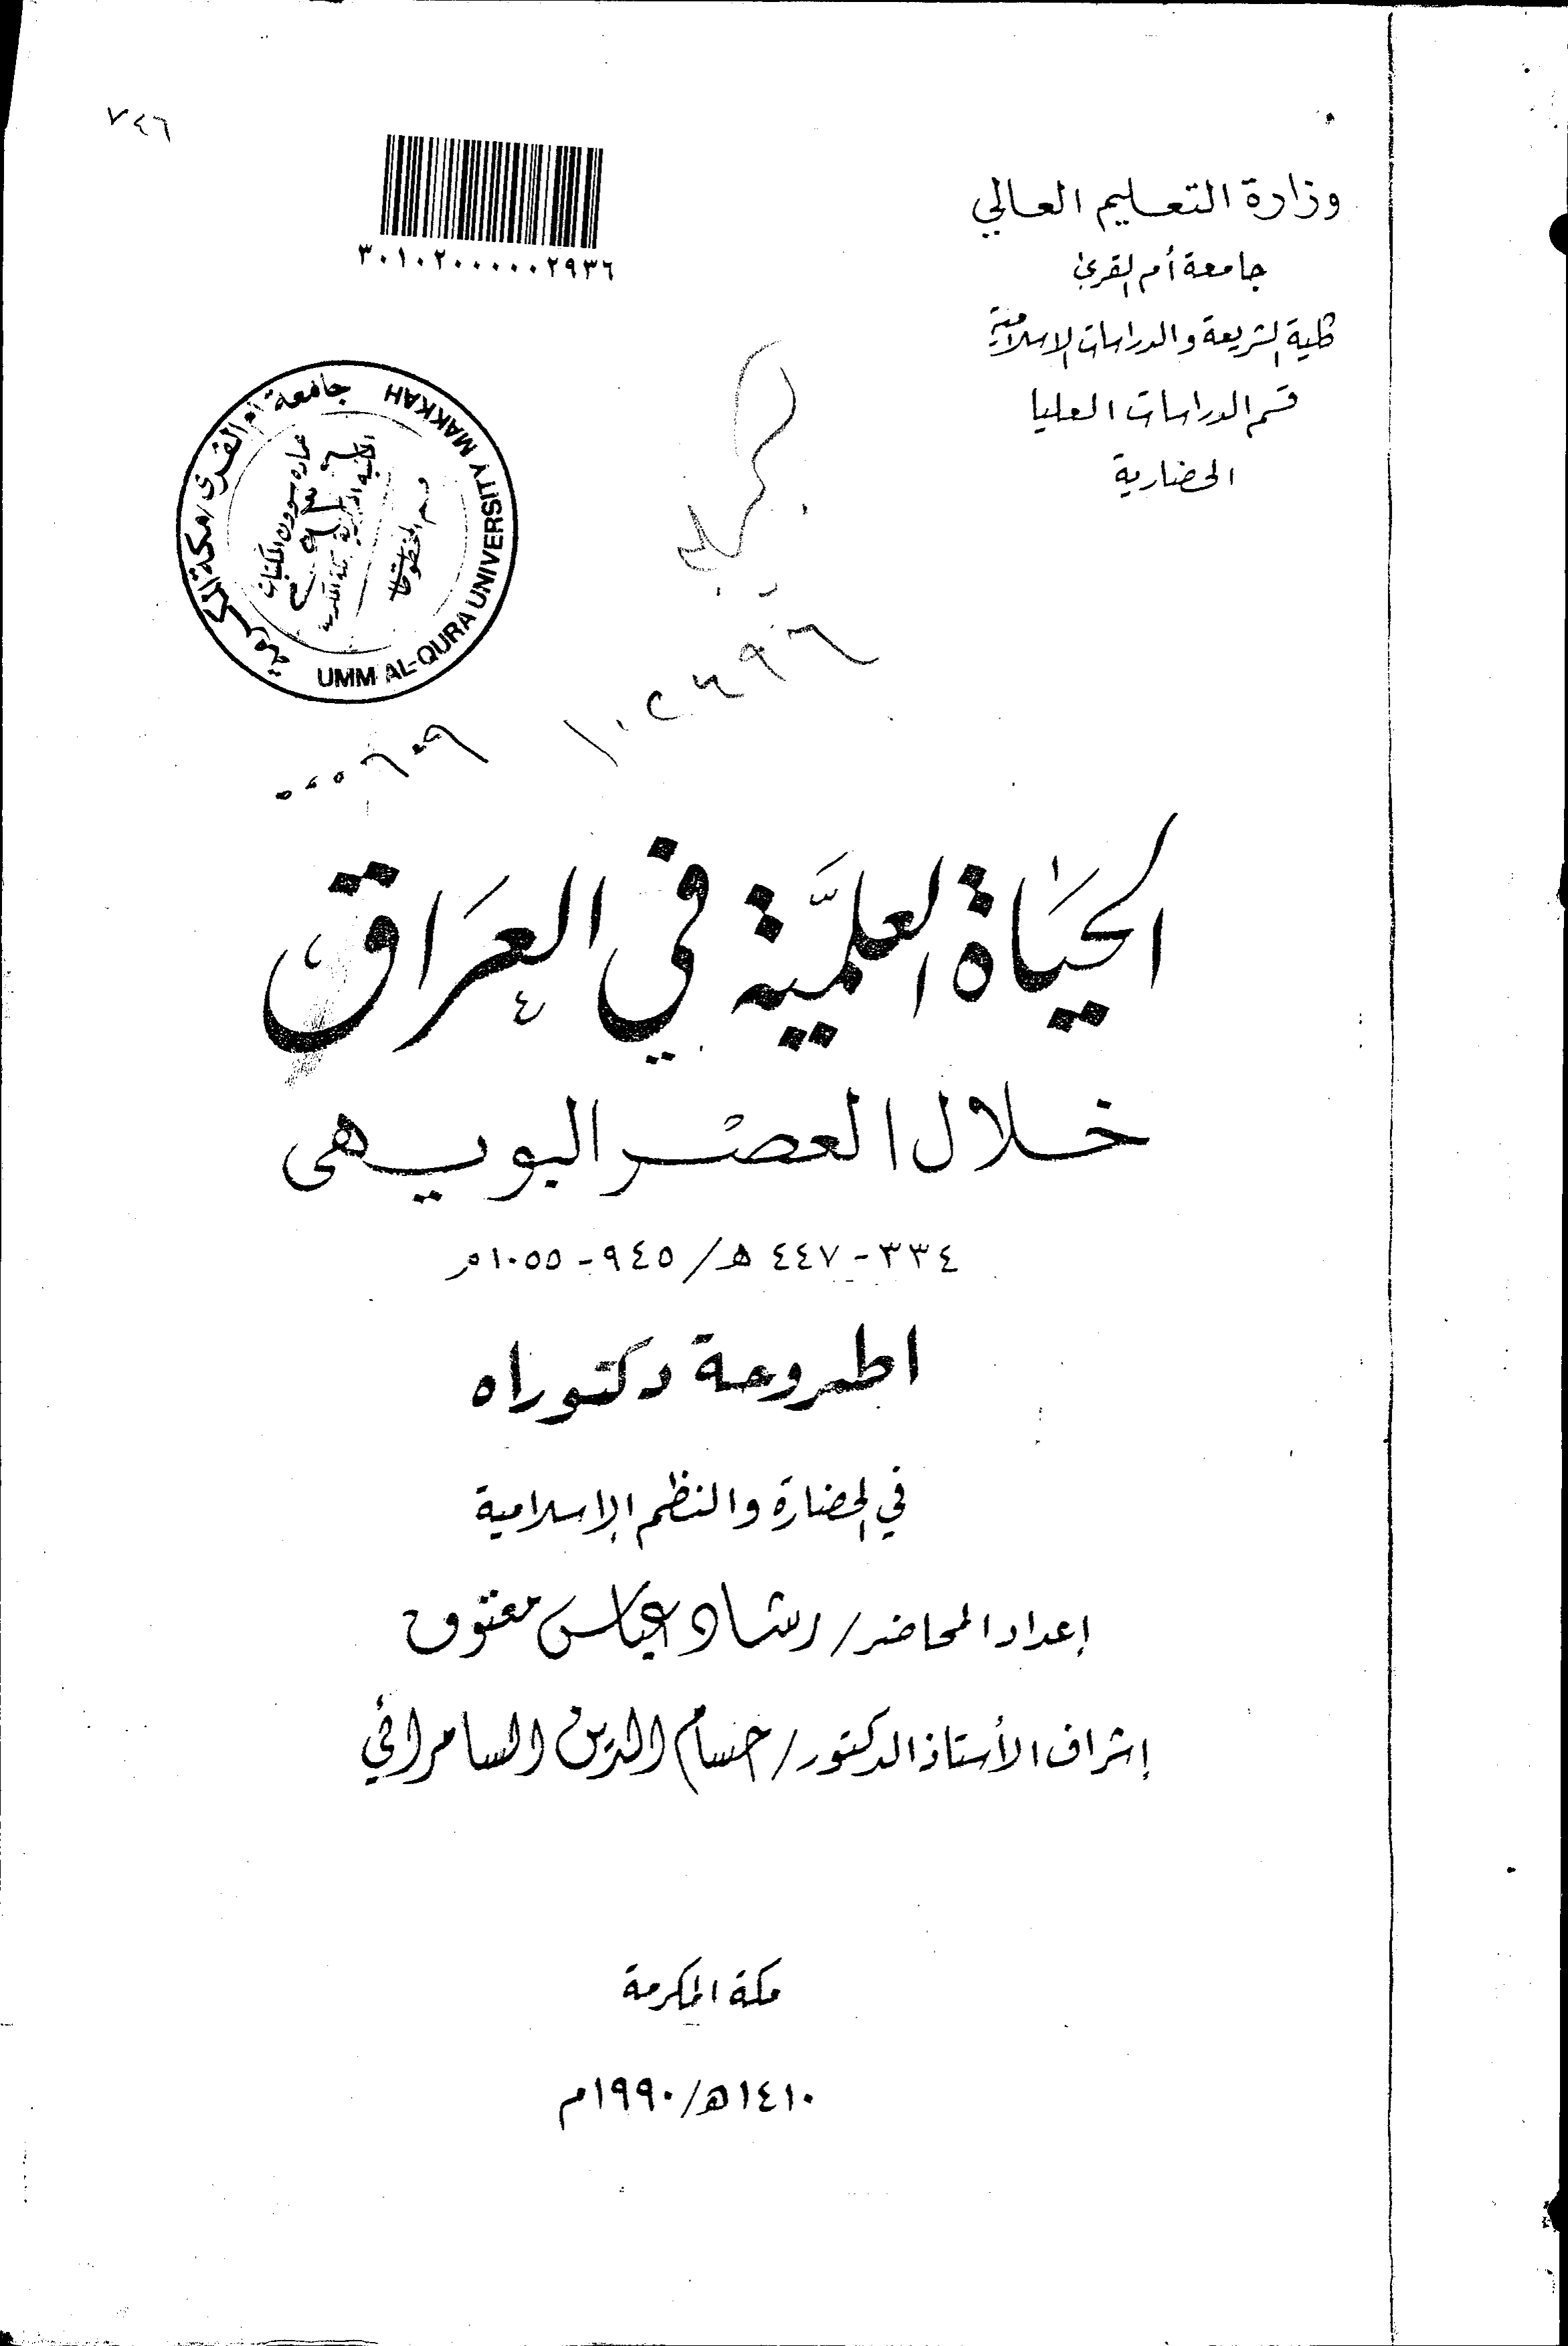 ٧٤٦
٣٠١٠٢٠٠٠٠٠٢٩٣٦
وزارة التعليم العالي
جامعة أم القرى
كلية الشريعة والدراسات الاسلامية
قسم الدراسات العليا
الحضارية
جامعة أم القرى / مكة المكرمة
UMM AL-QURA UNIVERSITY MAKKAH
عمادة شؤون المكتبات
قسم المخطوطات
الحيَاة العلميَّة في العرَاق
خلال العصر البويهى
٣٣٤ - ٤٤٧ هـ / ٩٤٥ - ١٠٥٥م
اطروحة دكتوراه
في الحضارة والنظم الإسلامية
إعداد المحاضر / رشاد عباس معتوق
إشراف الأستاذ الدكتور / حسام الدين السامرائي
مكة المكرمة
١٤١٠هـ / ١٩٩٠م